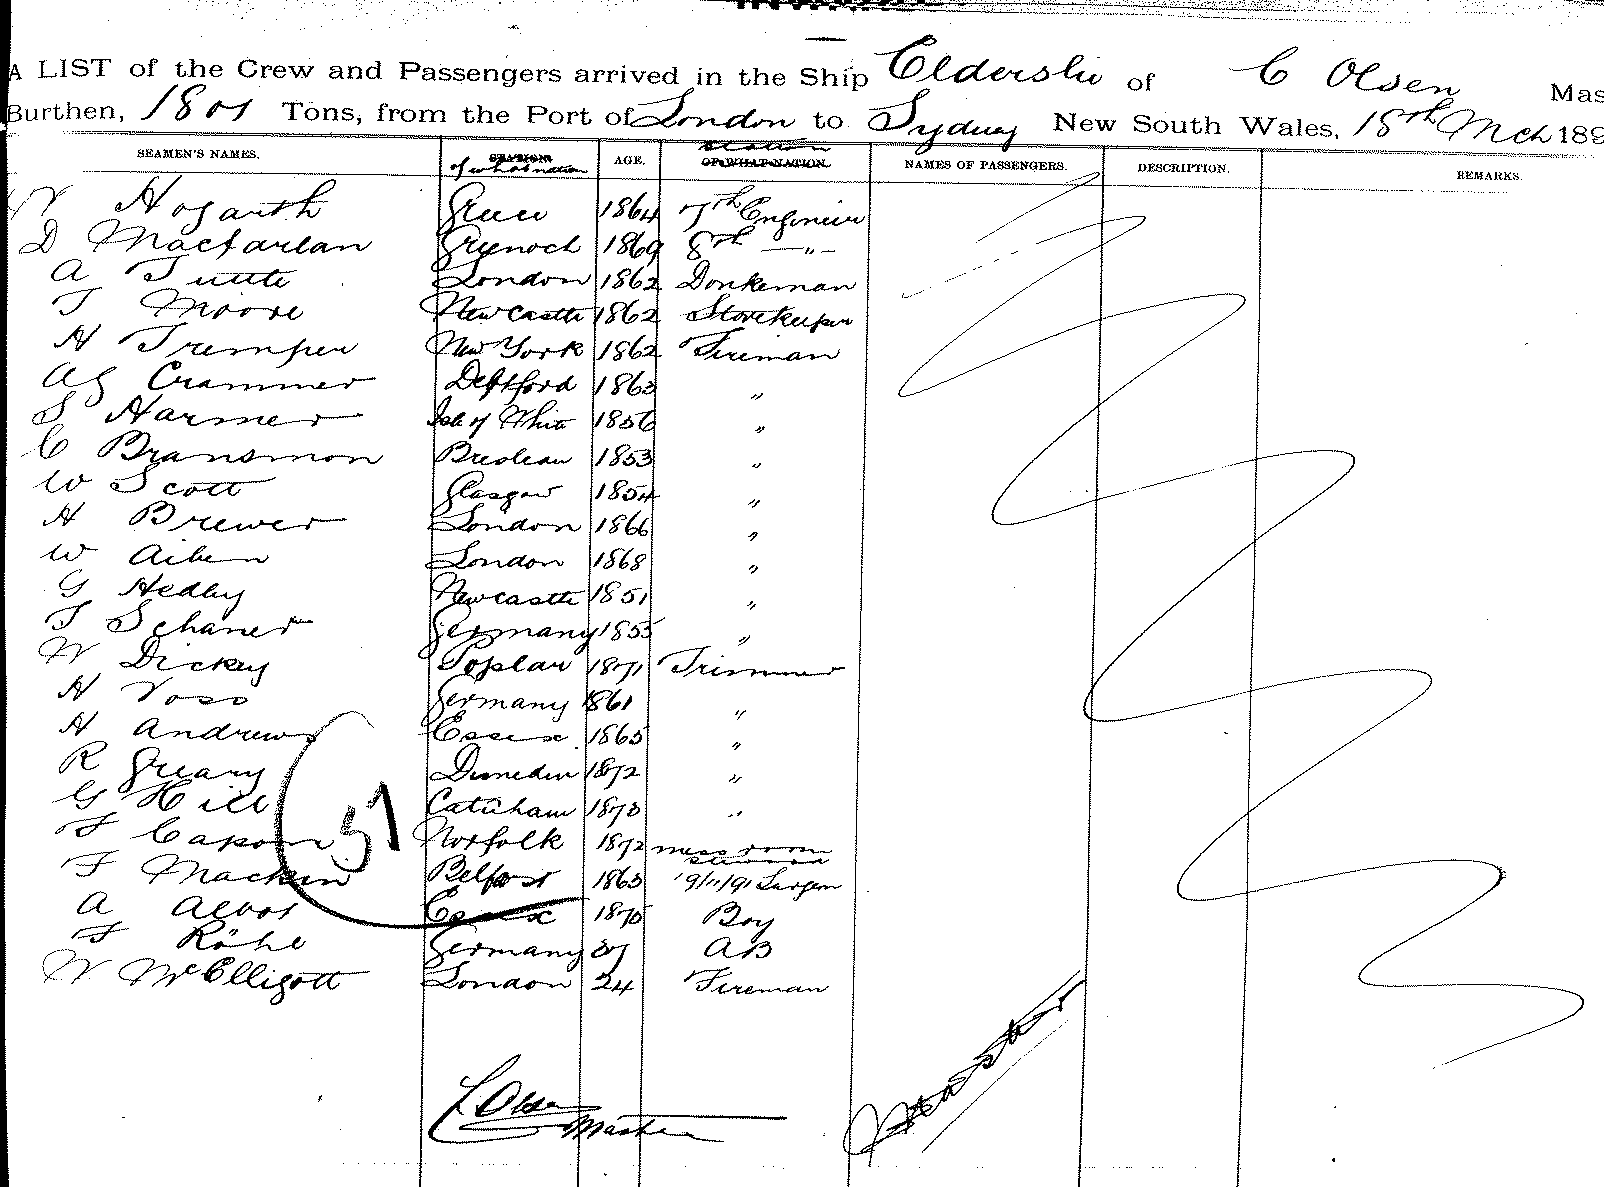 A LIST of the Crew and Passengers arrived in the Ship Elderslie of C Olsen Mas
Burthen, 1801 Tons, from the Port of London to Sydney New South Wales, 18th Mch 189
SEAMEN'S NAMES. STATION. of what nation AGE. station OF WHAT NATION. NAMES OF PASSENGERS. DESCRIPTION. REMARKS.
W Hogarth 1864 7th Engineer
D Macfarlan Greenoch 1869 8th —"—
A Tuttle London 1862 Donkeman
T Moore Newcastle 1862 Storekeeper
H Tremper New York 1862 Fireman
AG Crammer Deptford 1863 "
S Harmer Isle of White 1856 "
C Bransmon 1853 "
W Scott Glasgow 1854 "
H Brewer London 1866 "
W London 1868 "
G Hedley Newcastle 1851 "
T Schaner Germany 1855 "
W Dickey Poplar 1871 Trimmer
H Voss Germany 1861 "
H Andrews Essex 1865 "
R Greany Dunedin 1872 "
G Hill 1873 "
F Capon Norfolk 1872 mess room steward
F Mackin Belfast 1863 19/11/91 Surgeon
A Essex 1875 Boy
F Röhl Germany AB
W McElligott London 24 Fireman
51
C Olsen
Master